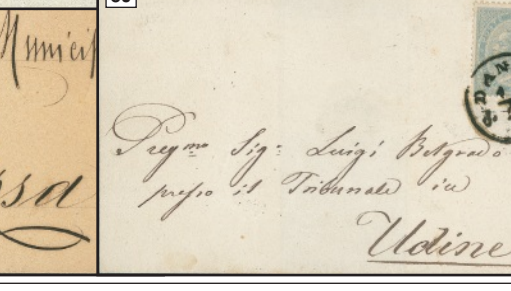 Municip
sd
Preg.mo Sig: Luigi Belgrado
presso il Tribunale in
Udine
DAN